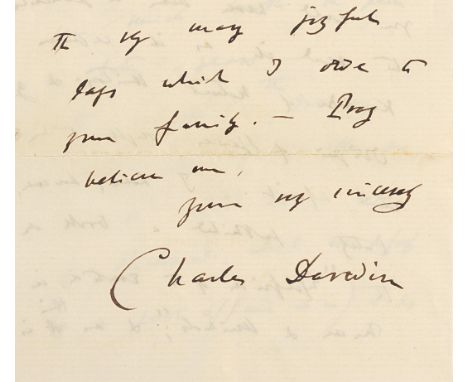 the very many joyful
days which I owe to
your family. — Pray
believe me,
yours very sincerely
Charles Darwin